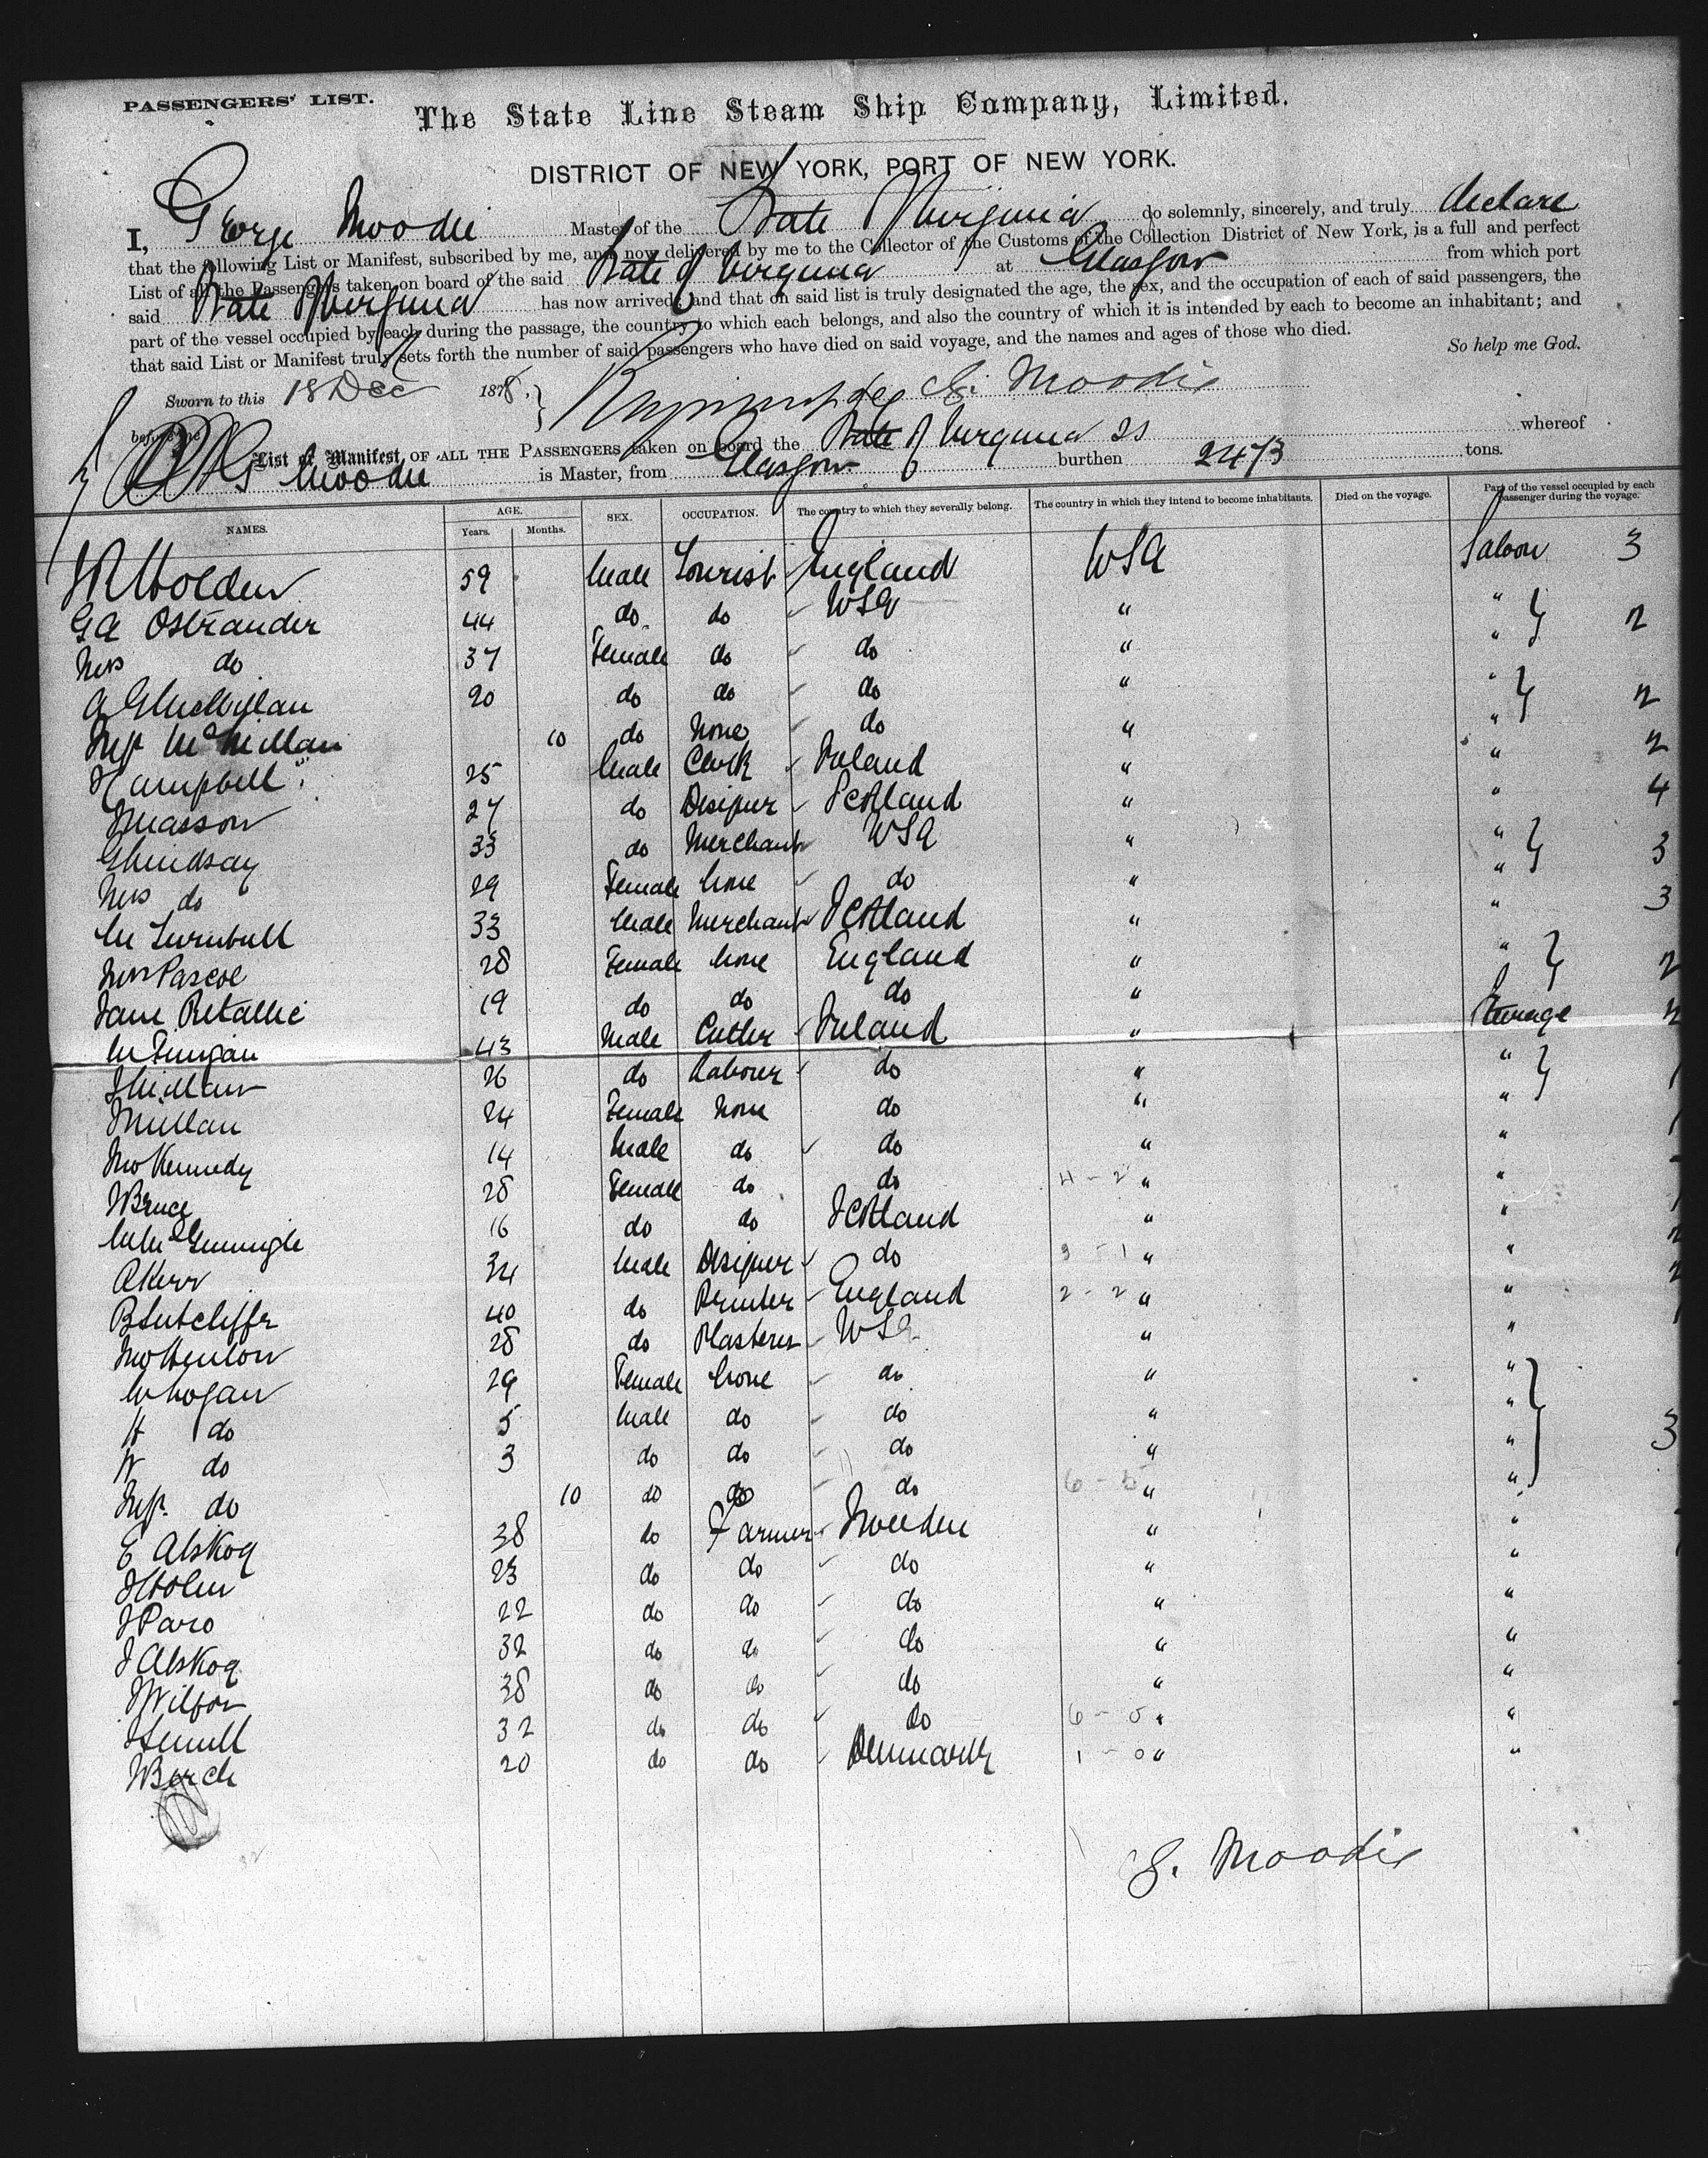 PASSENGERS' LIST.
The State Line Steam Ship Company, Limited.
DISTRICT OF NEW YORK, PORT OF NEW YORK.
I, George Moodie Master of the State of Virginia do solemnly, sincerely, and truly declare
that the following List or Manifest, subscribed by me, and now delivered by me to the Collector of the Customs of the Collection District of New York, is a full and perfect
List of all the Passengers taken on board of the said State of Virginia at Glasgow from which port
said State of Virginia has now arrived; and that on said list is truly designated the age, the sex, and the occupation of each of said passengers, the
part of the vessel occupied by each during the passage, the country to which each belongs, and also the country of which it is intended by each to become an inhabitant; and
that said List or Manifest truly sets forth the number of said passengers who have died on said voyage, and the names and ages of those who died.
So help me God.
Sworn to this 18 Dec 1878. G. Moodie
before me
List or Manifest, OF ALL THE PASSENGERS taken on board the State of Virginia SS whereof
G Moodie is Master, from Glasgow burthen 2473 tons.
NAMES. AGE. Years. Months. SEX. OCCUPATION. The country to which they severally belong. The country in which they intend to become inhabitants. Died on the voyage. Part of the vessel occupied by each passenger during the voyage.
Holden 59 Male Tourist England USA Saloon 3
G A Ostrander 44 do do USA " " 2
Mrs do 37 Female do do " "
20 do do do " " 2
Inft McMillan 10 do None do " "
Campbell 25 Male Clerk Ireland " " 2
Masson 27 do Designer Scotland " " 4
G Lindsay 33 do Merchant USA " " 3
Mrs do 29 Female None do " "
M Turnbull 33 Male Merchant Scotland " " 3
Mrs Pascoe 28 Female None England " " 2
Jane Retallic 19 do do do "
M Finigan 43 Male Cutler Ireland " Steerage
26 do Laborer do " "
Mullan 24 Female None do " "
Jno Kennedy 14 Male do do " "
Bruce 28 Female do do 4 - 2 " "
16 do do Scotland " "
A Kerr 34 Male Designer do 3 - 1 " "
B Sutcliffe 40 do Printer England 2 - 2 " "
Jno Henlon 28 do Plasterer USA " "
M Logan 29 Female None do " "
H do 5 Male do do " "
W do 3 do do do " " 3
Inft. do 10 do do do 6 - " "
E Alskog 38 do Farmer Sweden " "
J Holm 23 do do do " "
J Paro 22 do do do " "
J Alskog 32 do do do " "
38 do do do " "
32 do do do 6 - 0 " "
Berch 20 do do Denmark 1 - 0 " "
G. Moodie